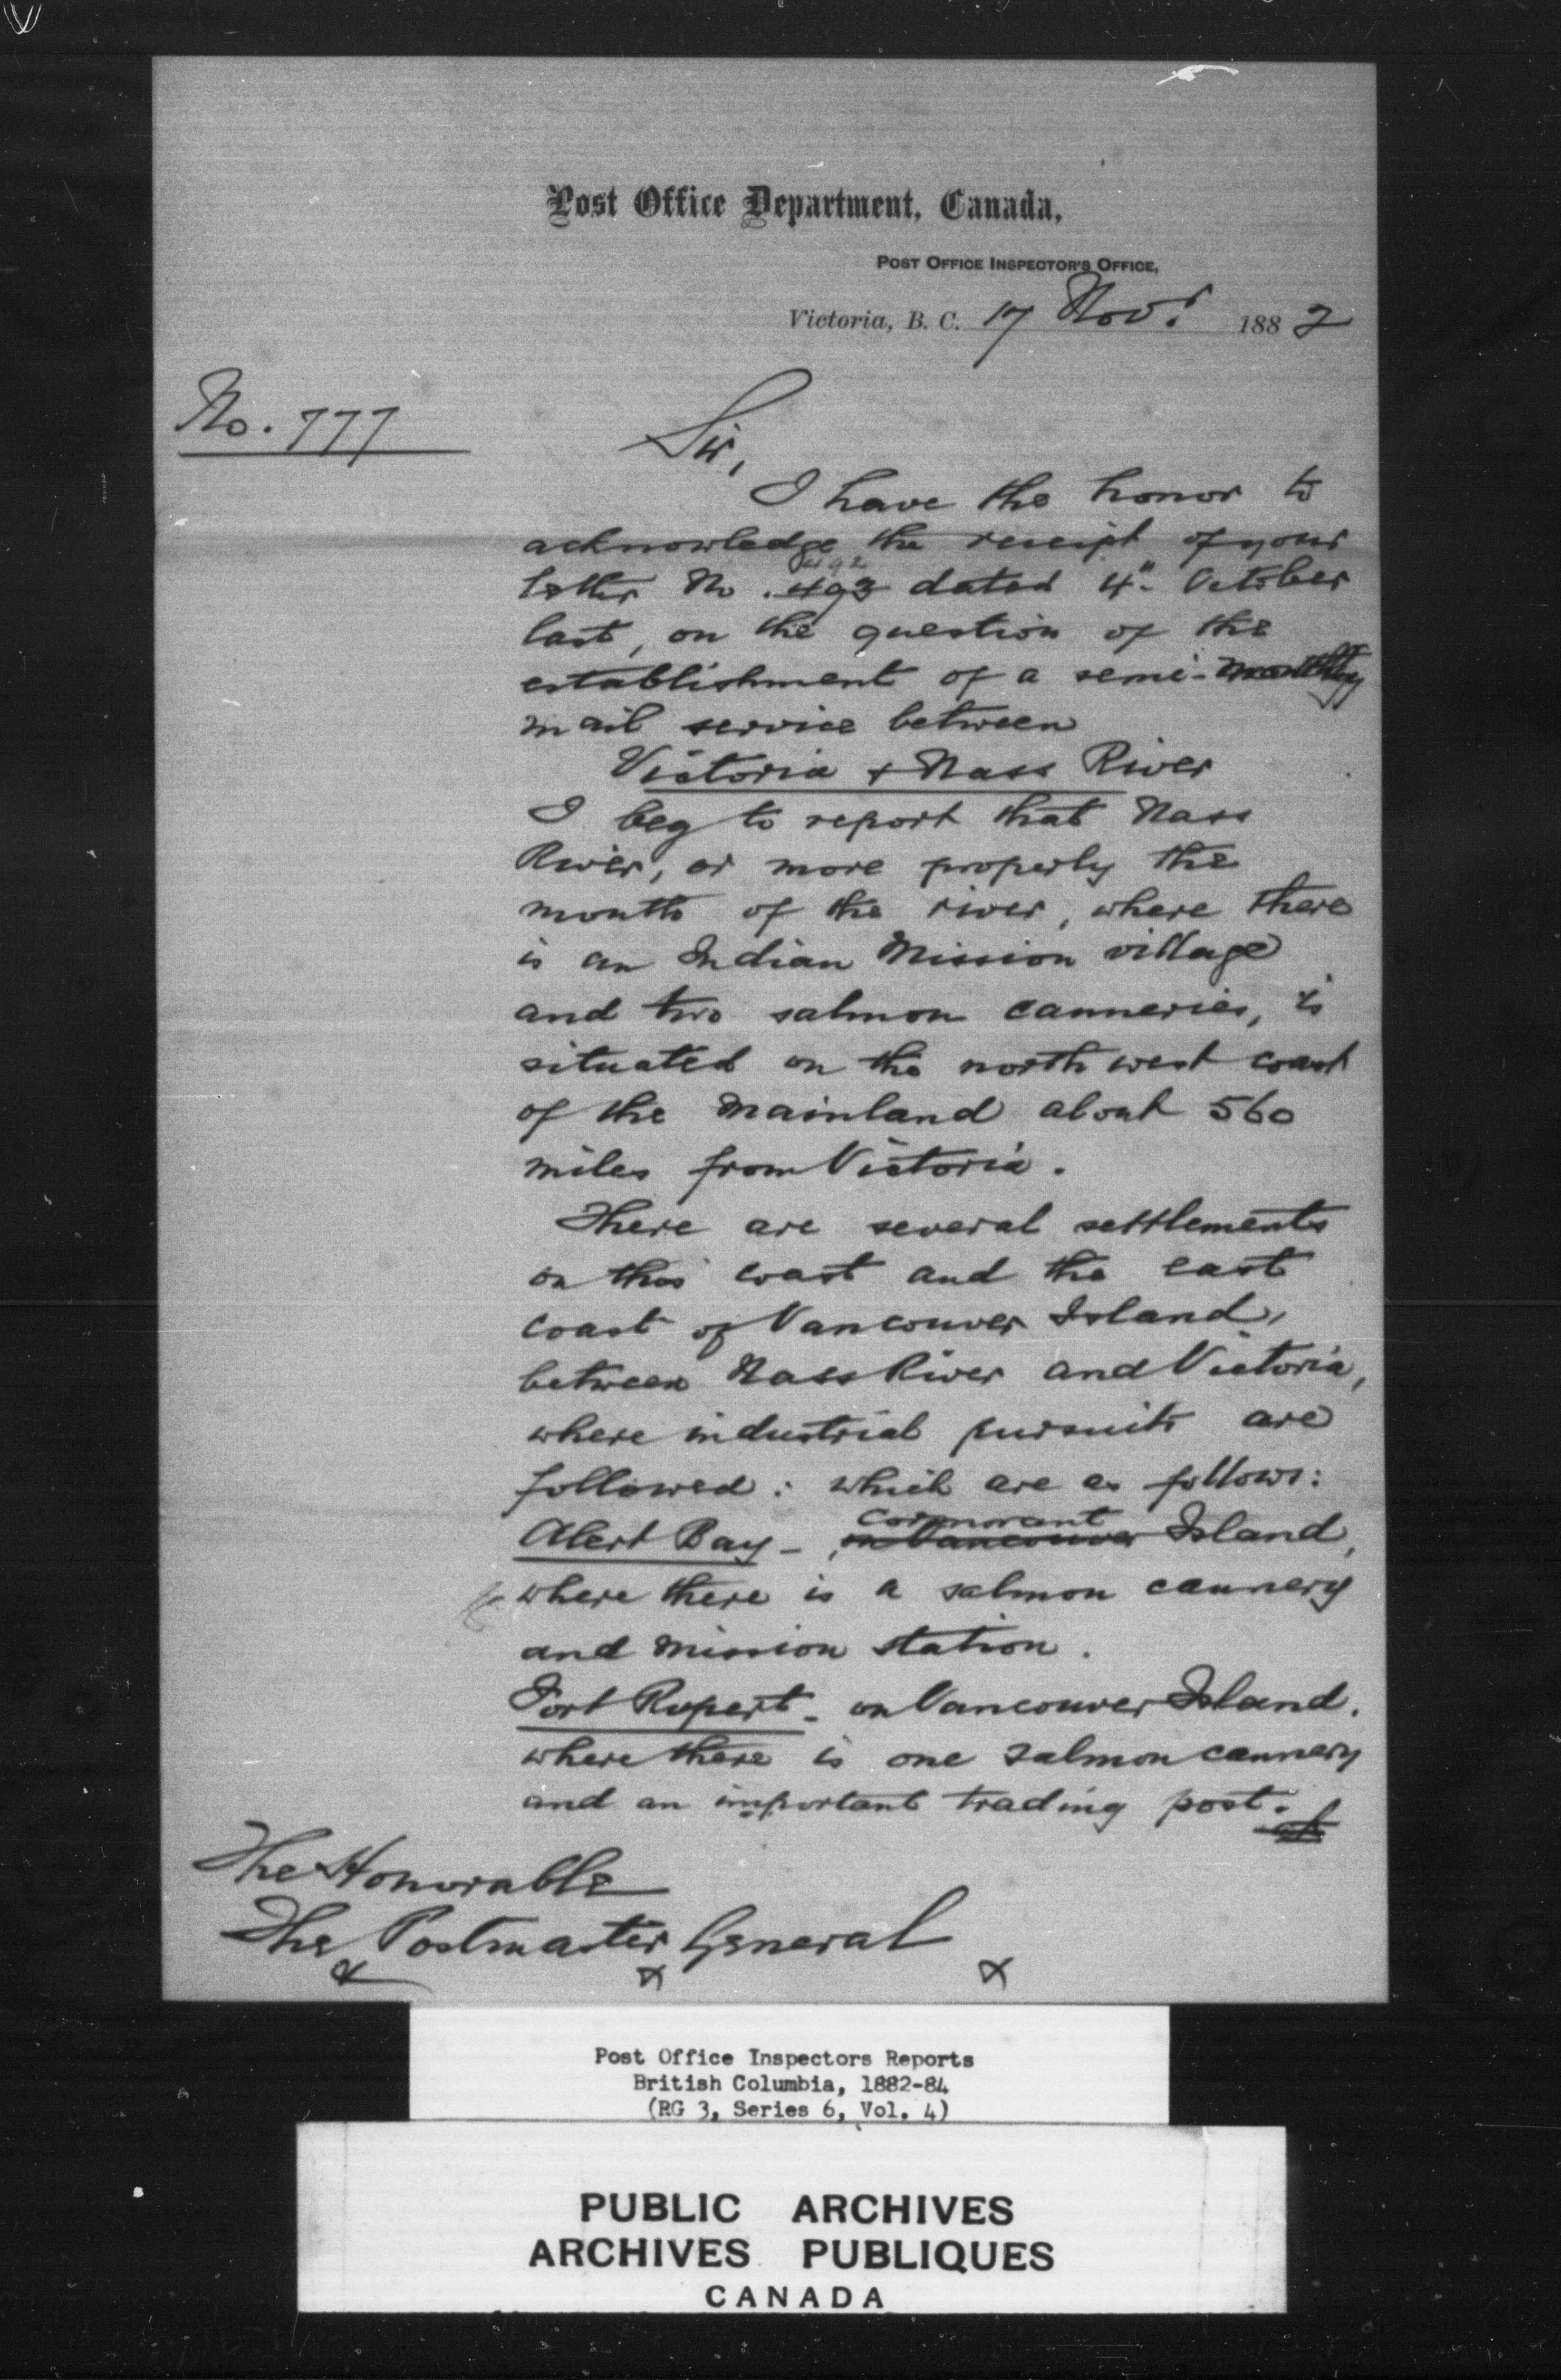 Post Office Department, Canada,
POST OFFICE INSPECTOR'S OFFICE,
Victoria, B. C. 17 Novr 1882
No. 777
Sir,
I have the honor to
acknowledge the receipt of your
492
letter No. 493 dated 4" October
last, on the question of the
establishment of a semi-monthly
mail service between
Victoria + Nass River
I beg to report that Nass
River, or more properly the
mouth of the river, where there
is an Indian Mission village
and two salmon canneries, is
situated on the north west coast
of the Mainland about 560
miles from Victoria.
There are several settlements
on this coast and the east
coast of Vancouver Island,
between Nass River and Victoria,
where industrial pursuits are
followed: which are as follows:
Cormorant
Alert Bay - on Vancouver Island,
where there is a salmon cannery
and mission station.
Fort Rupert - on Vancouver Island.
where there is one salmon cannery
and an important trading post.
The Honorable
The Postmaster General
Post Office Inspectors Reports
British Columbia, 1882-84
(RG 3, Series 6, Vol. 4)
PUBLIC ARCHIVES
ARCHIVES PUBLIQUES
CANADA